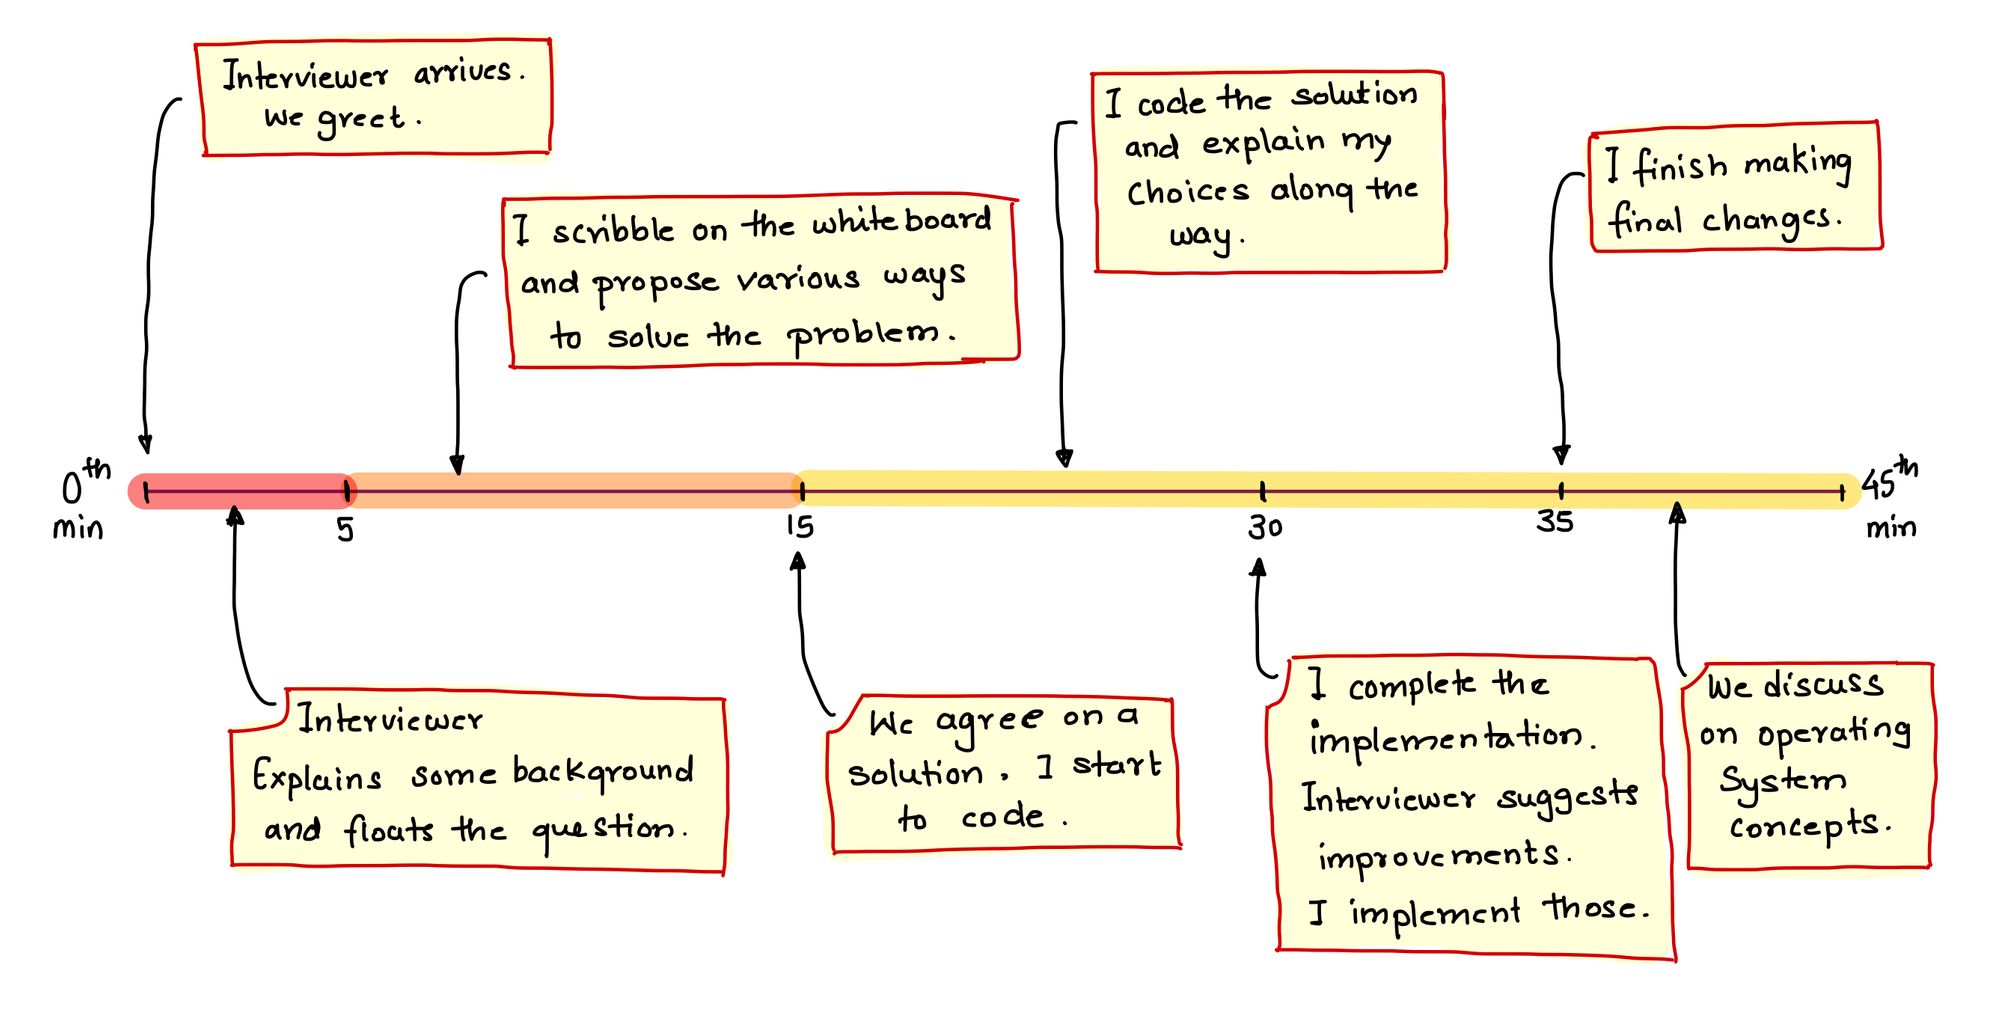 Interviewer arrives.
We greet.
I scribble on the whiteboard
and propose various ways
to solve the problem.
I code the solution
and explain my
choices along the
way.
I finish making
final changes.
0th
min
5
15
30
35
45th
min
Interviewer
Explains some background
and floats the question.
We agree on a
solution. I start
to code.
I complete the
implementation.
Interviewer suggests
improvements.
I implement those.
We discuss
on operating
System
concepts.